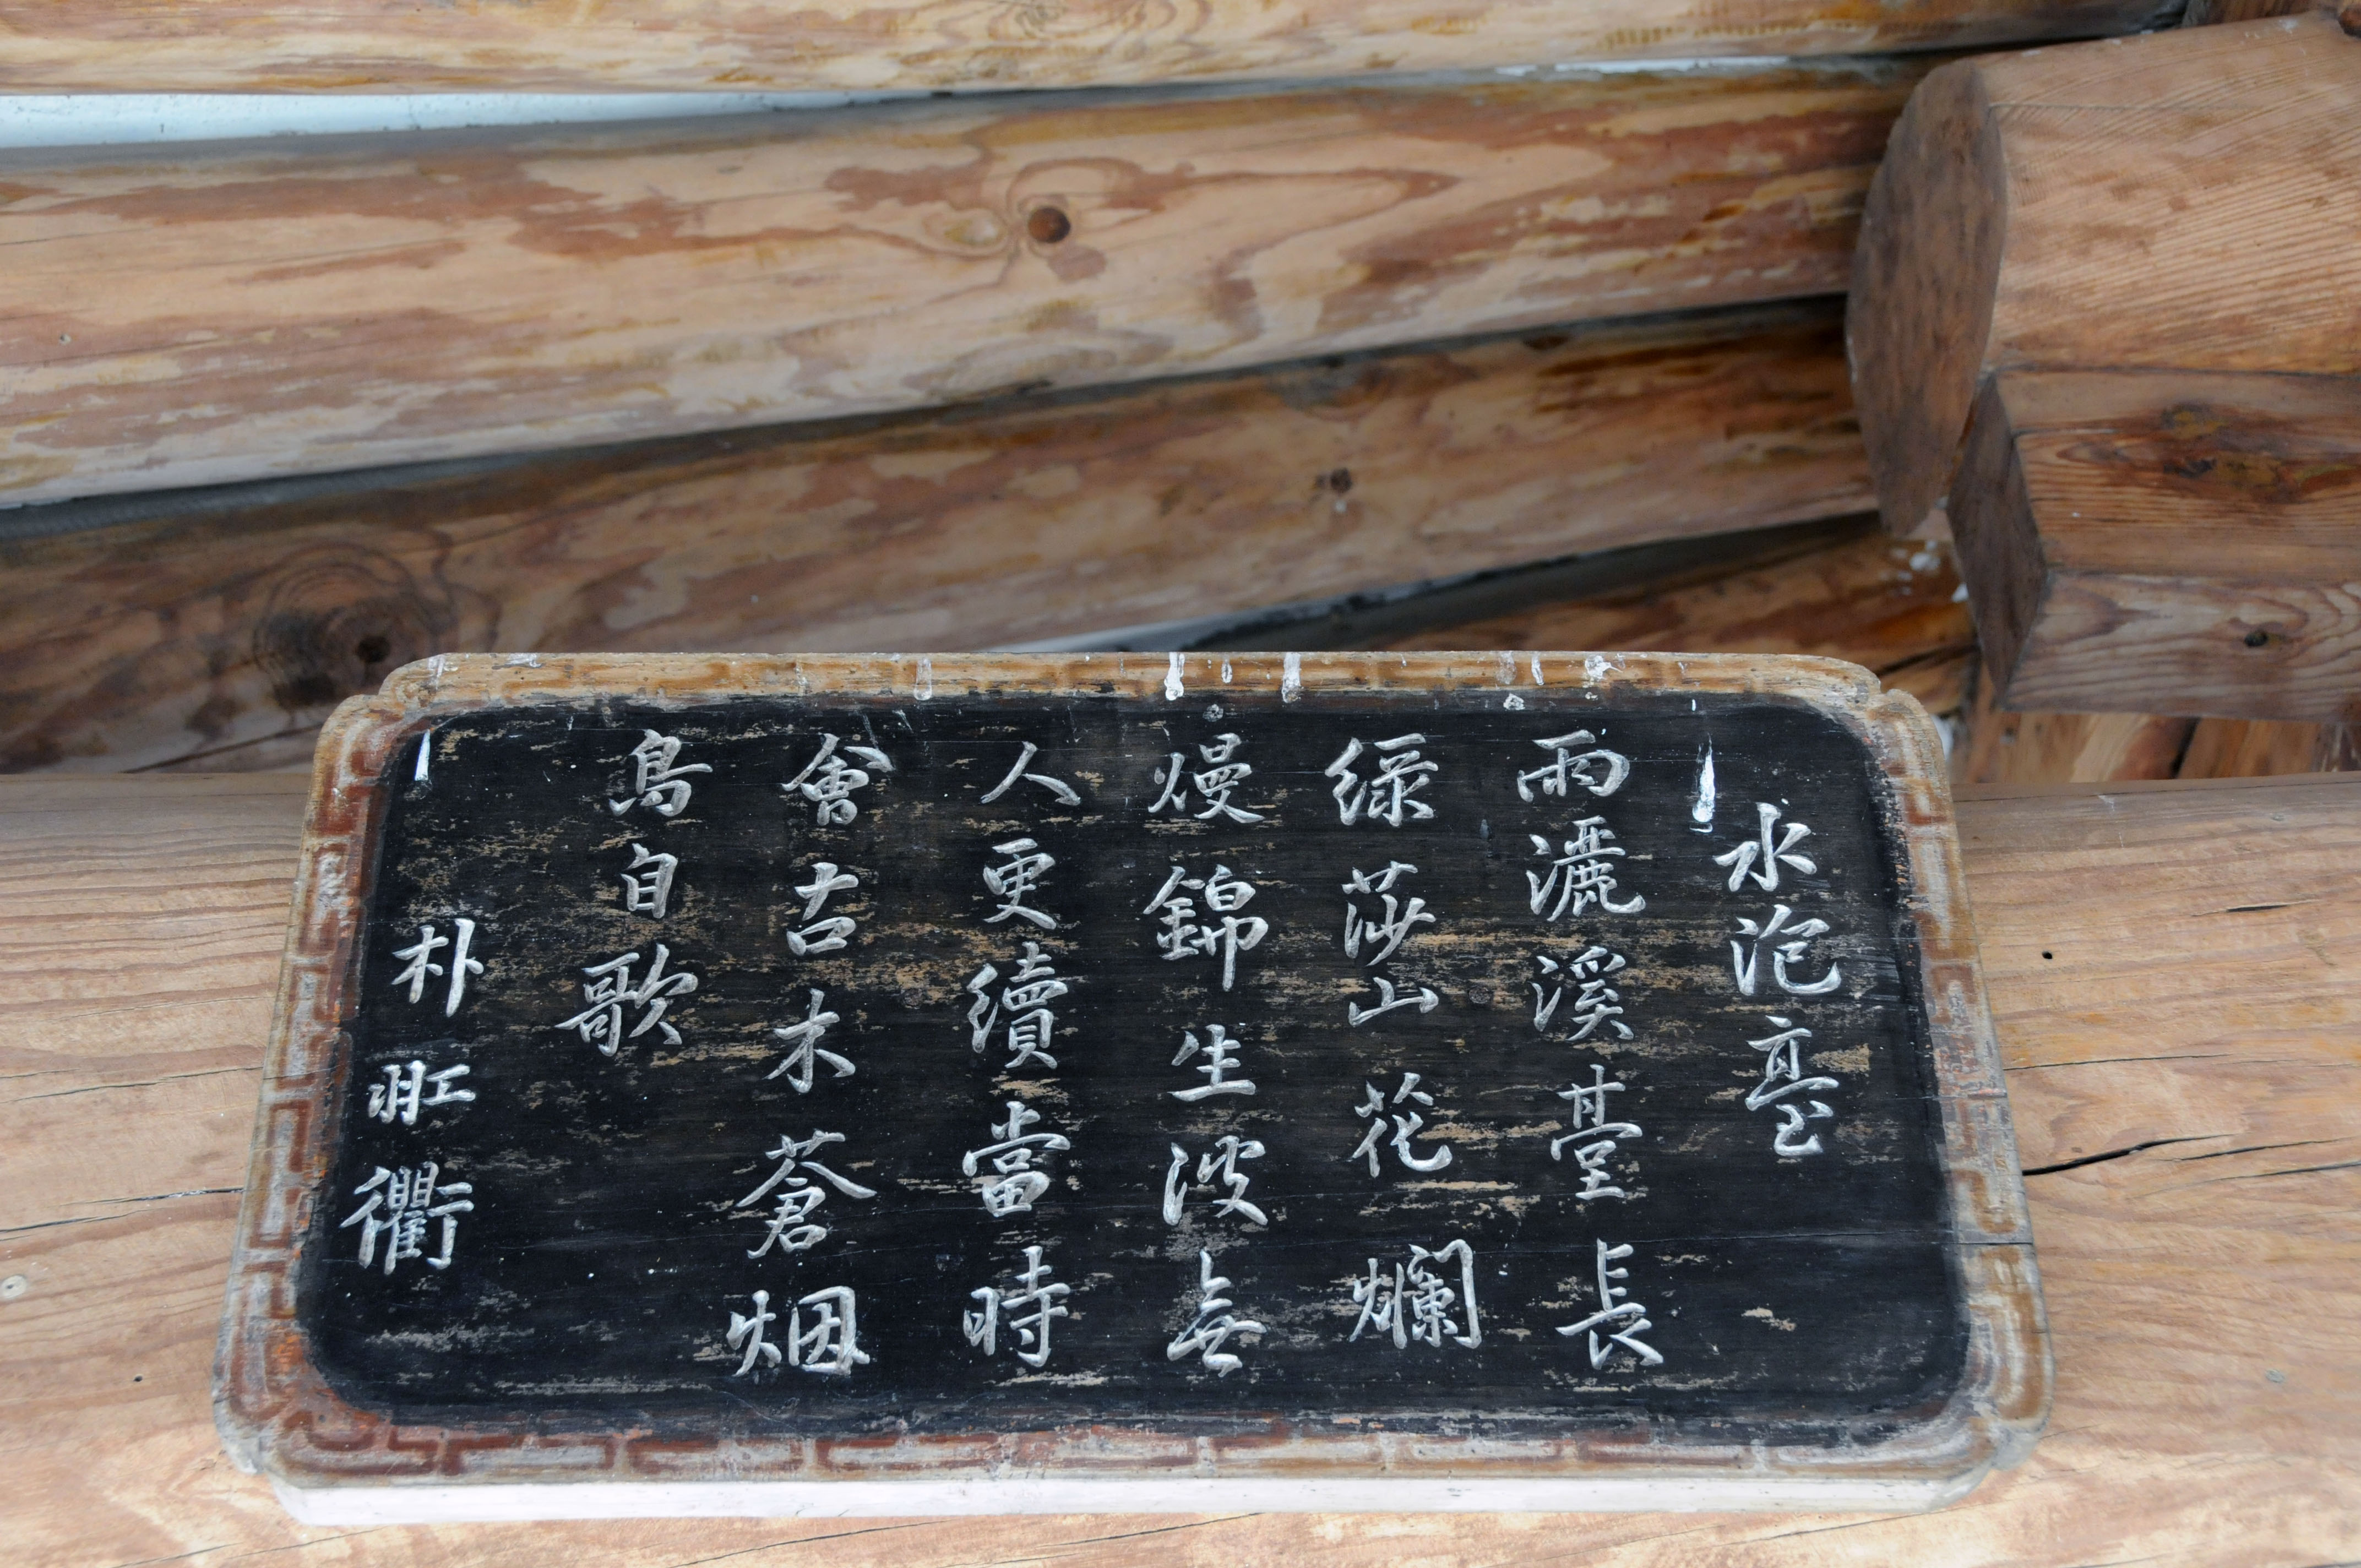 水泡臺
雨灑溪臺長
綠莎山花爛
熳錦生波無
人更續當時
會古木蒼烟
鳥自歌
朴羾衢